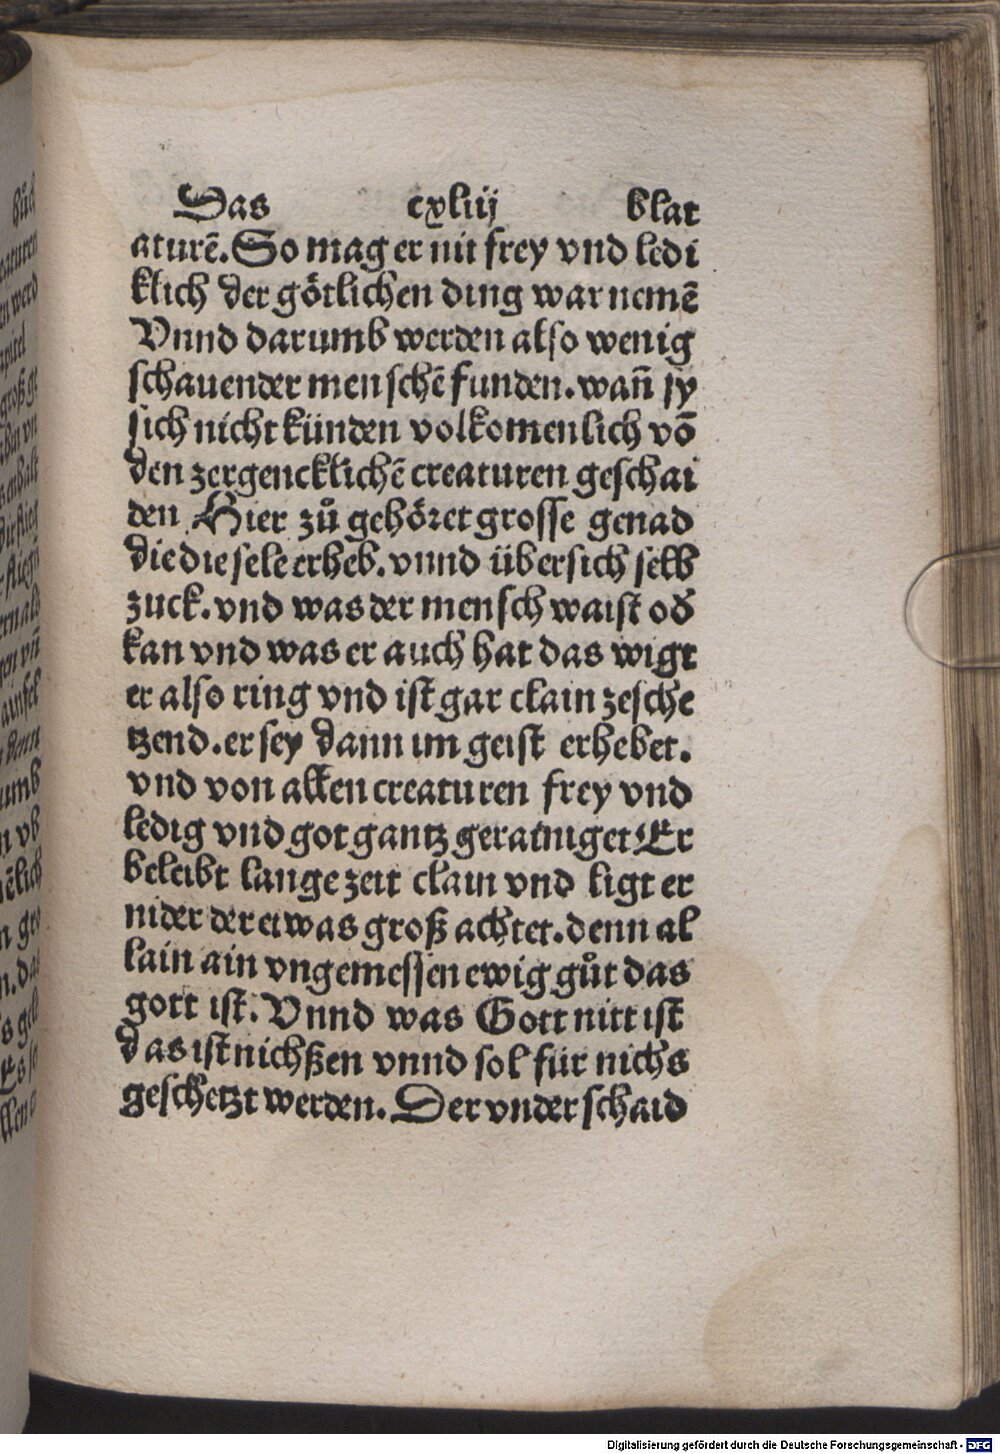 Das cxliij blat
aturē. So mag er nit frey vnd ledi
klich der götlichen ding war nemē
Vnnd darumb werden also wenig
schauender menschē funden. wañ sy
sich nicht künden volkomenlich vō
den zergencklichē creaturen geschai
den Hier zů gehöret grosse genad
die die sele erheb. vnnd übersich selb
zuck. vnd was der mensch waist od
kan vnd was er auch hat das wigt
er also ring vnd ist gar clain zesche
tzend. er sey dann im geist erhebet.
vnd von allen creaturen frey vnd
ledig vnd got gantz gerainiget Er
beleibt lange zeit clain vnd ligt er
nider der etwas groß achtet. denn al
lain ain vngemessen ewig gůt das
gott ist. Vnnd was Gott nitt ist
das ist nichßen vnnd sol für nichs
geschetzt werden. Der vnderschaid
Digitalisierung gefördert durch die Deutsche Forschungsgemeinschaft - DFG